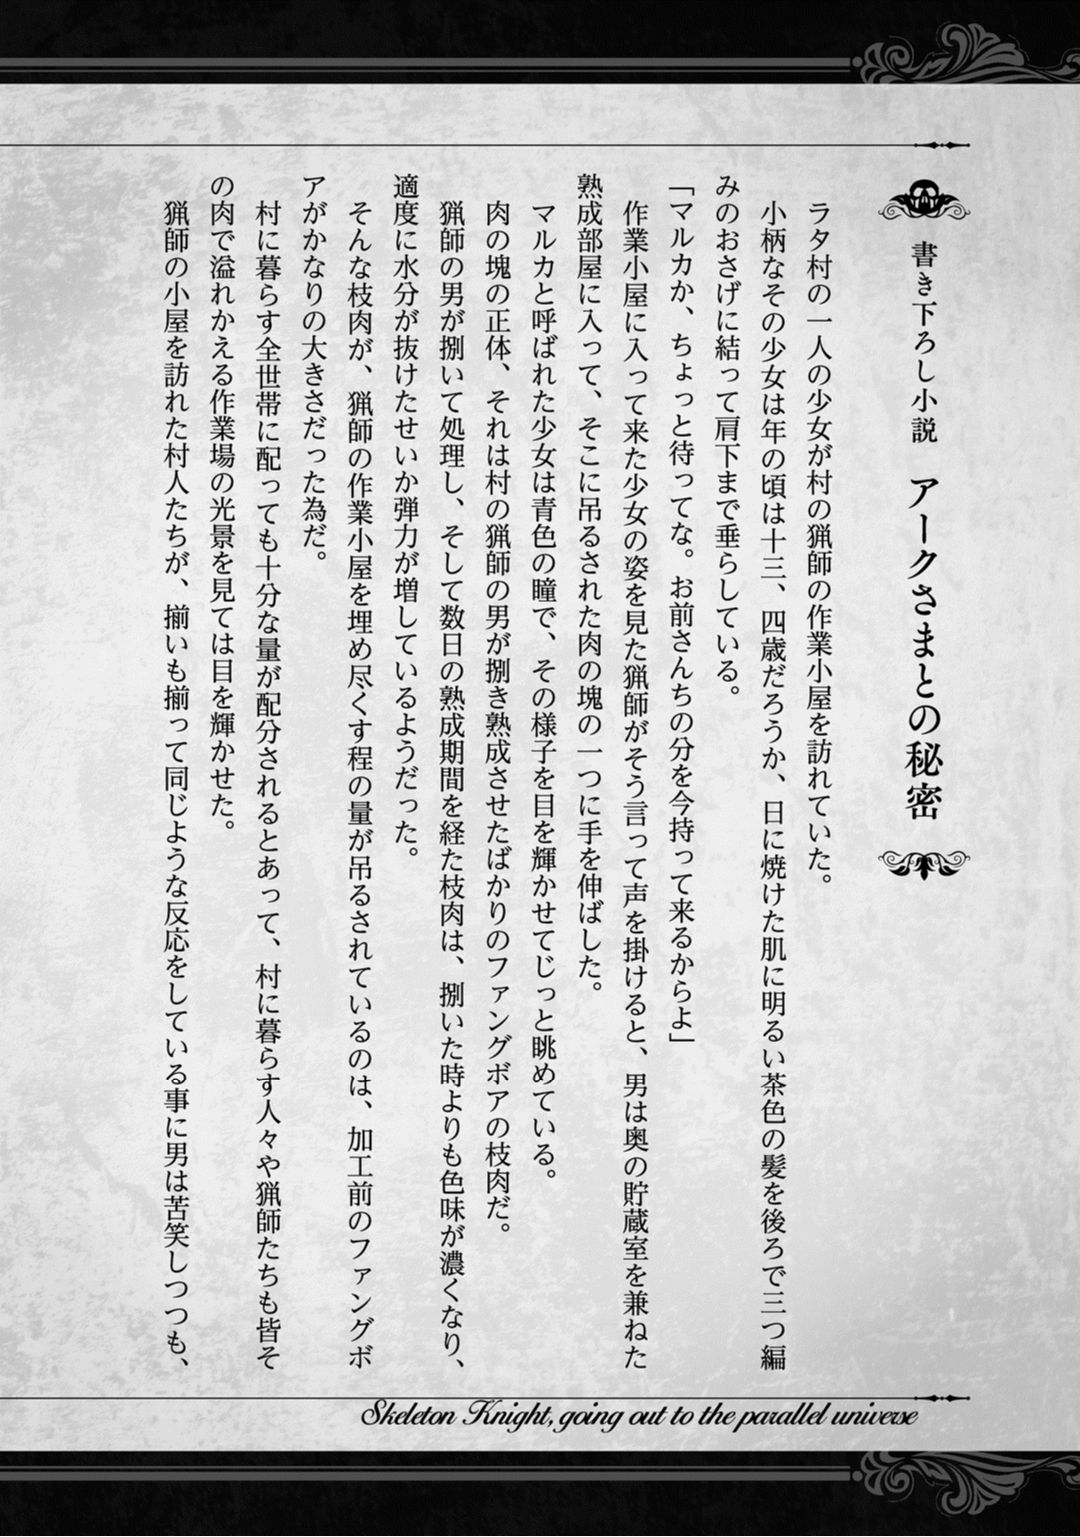 書き下ろし小説　アークさまとの秘密
ラタ村の一人の少女が村の猟師の作業小屋を訪れていた。
小柄なその少女は年の頃は十三、四歳だろうか、日に焼けた肌に明るい茶色の髪を後ろで三つ編
みのおさげに結って肩下まで垂らしている。
「マルカか、ちょっと待ってな。お前さんちの分を今持って来るからよ」
作業小屋に入って来た少女の姿を見た猟師がそう言って声を掛けると、男は奥の貯蔵室を兼ねた
熟成部屋に入って、そこに吊るされた肉の塊の一つに手を伸ばした。
マルカと呼ばれた少女は青色の瞳で、その様子を目を輝かせてじっと眺めている。
肉の塊の正体、それは村の猟師の男が捌き熟成させたばかりのファングボアの枝肉だ。
猟師の男が捌いて処理し、そして数日の熟成期間を経た枝肉は、捌いた時よりも色味が濃くなり、
適度に水分が抜けたせいか弾力が増しているようだった。
そんな枝肉が、猟師の作業小屋を埋め尽くす程の量が吊るされているのは、加工前のファングボ
アがかなりの大きさだった為だ。
村に暮らす全世帯に配っても十分な量が配分されるとあって、村に暮らす人々や猟師たちも皆そ
の肉で溢れかえる作業場の光景を見ては目を輝かせた。
猟師の小屋を訪れた村人たちが、揃いも揃って同じような反応をしている事に男は苦笑しつつも、
Skeleton Knight, going out to the parallel universe